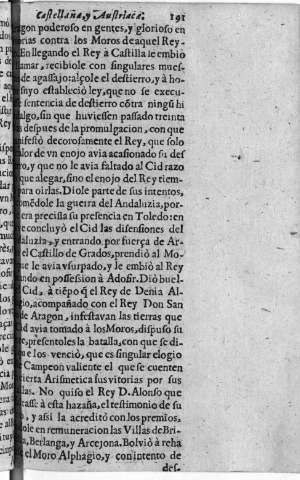 Castellana, y Austriaca. 191
agon poderoso en gentes, y glorioso en
orias contra los Moros de aquel Rey-
En llegando el Rey à Castilla le embiò
lamar, recibiole con singulares mues-
de agassajo: alçole el destierro, y à ho-
suyo estableciò ley, que no se execu-
sentencia de destierro cõtra ningũ hi
algo, sin que huviessen passado treinta
as despues de la promulgacion, con que
ifestò decorosamente el Rey, que solo
alor de vn enojo avia acasionado su des
ro, y que no le avia faltado al Cid razo
que alegar, sino el enojo del Rey tiem-
para oirlas. Diole parte de sus intentos,
omẽdole la guerra del Andaluzia, por-
era precissa su presencia en Toledo: en
e concluyò el Cid las disensiones del
aluzia, y entrando por fuerça de Ar-
el Castillo de Grados, prendiò al Mo-
que le avia vsurpado, y le embiò al Rey
ndo en possession à Adofir. Diò buel-
Cid, à tiẽpo q̃ el Rey de Denia Al-
io, acompañado con el Rey Don San
de Aragon, infestavan las tierras que
id avia tomado à los Moros, dispuso su
e, presentoles la batalla, con que se di-
ue los venciò, que es singular elogio
Campeon valiente el que se cuenten
ierta Arismetica sus vitorias por sus
las. No quiso el Rey D. Alonso que
asse à esta hazaña, el testimonio de su
, y assi la acreditò con los premios,
ole en remuneracion las Villas de Bri-
a, Berlanga, y Arcejona. Bolviò à reha
el Moro Alphagio, y con intento de
des-